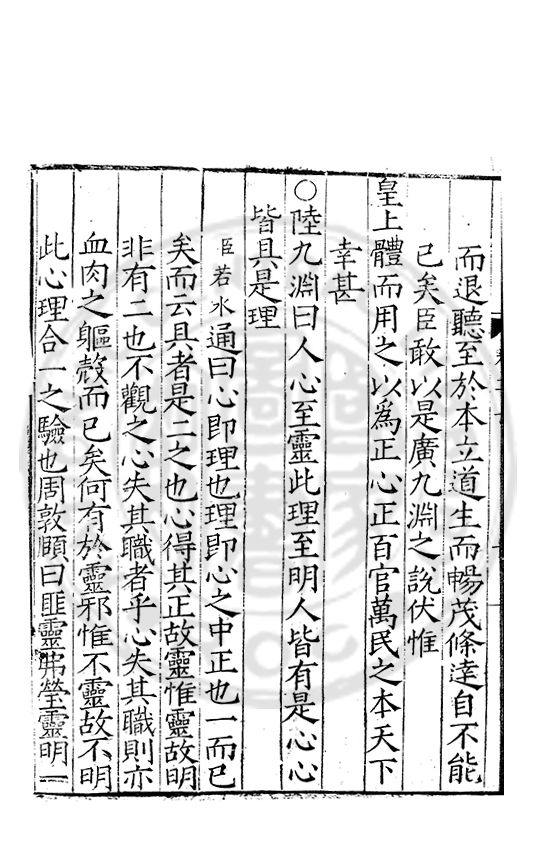 而退聽至於本立道生而暢茂條達自不能
已矣臣敢以是廣九淵之說伏惟
皇上體而用之以為正心正百官萬民之本天下
幸甚
○陸九淵曰人心至靈此理至明人皆有是心心
皆具是理
臣若水通曰心即理也理即心之中正也一而已
矣而云具者是二之也心得其正故靈惟靈故明
非有二也不觀之心失其職者乎心失其職則亦
血肉之軀殼而已矣何有於靈邪惟不靈故不明
此心理合一之驗也周敦頤曰匪靈弗瑩靈明一